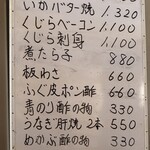 いかバター焼 1,320
くじらベーコン 1,100
くじら刺身 1,100
煮たら子 880
板わさ 660
ふぐ皮ポン酢 660
青のり酢の物 330
うなぎ肝焼 2本 550
めかぶ酢の物 330